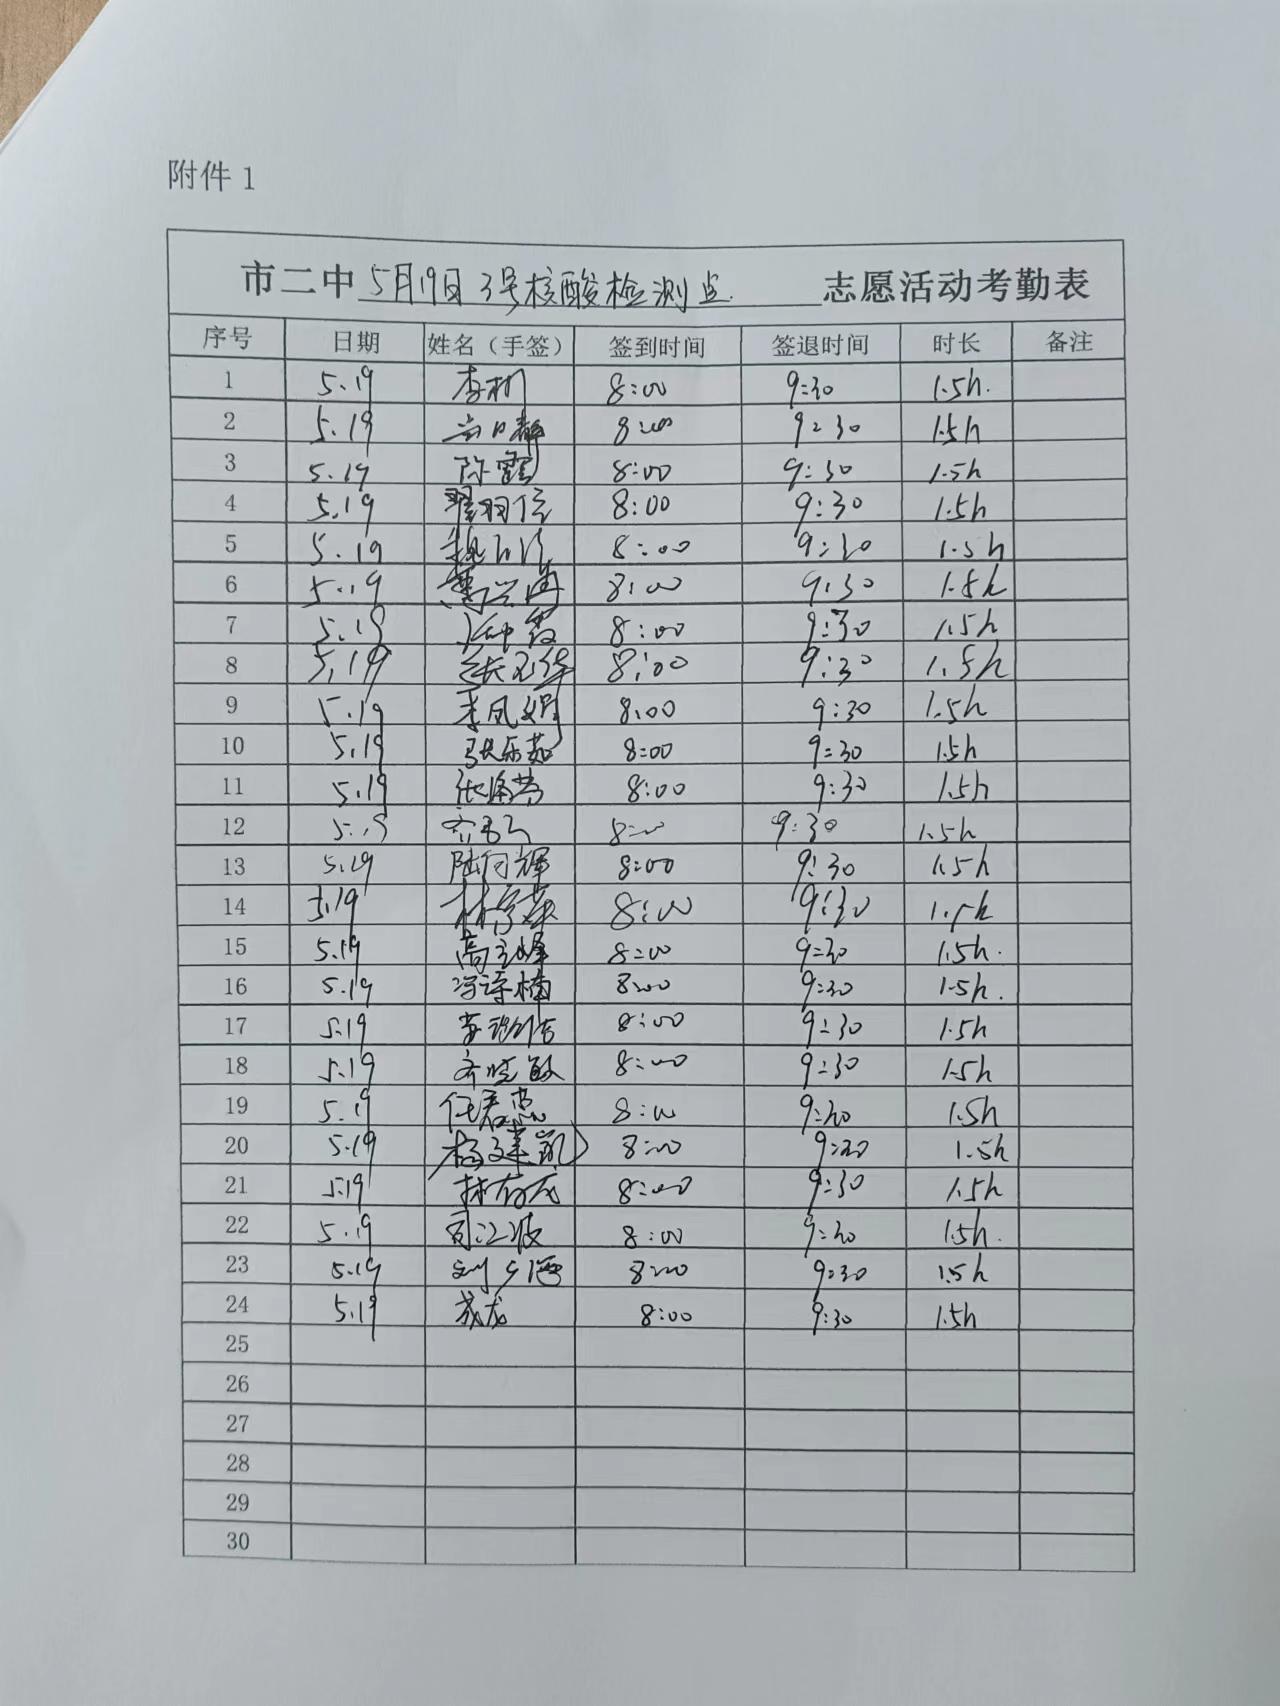 附件1
市二中 5月19日3号核酸检测点 志愿活动考勤表
序号 日期 姓名（手签） 签到时间 签退时间 时长 备注
1 5.19 8:00 9:30 1.5h.
2 5.19 8:00 9:30 1.5h
3 5.19 陈霞 8:00 9:30 1.5h
4 5.19 8:00 9:30 1.5h
5 5.19 8:00 9:30 1.5h
6 5.19 8:00 9:30 1.5h
7 5.19 8:00 9:30 1.5h
8 5.19 8:00 9:30 1.5h
9 5.19 李凤娟 8:00 9:30 1.5h
10 5.19 8:00 9:30 1.5h
11 5.19 8:00 9:30 1.5h
12 5.19 8:00 9:30 1.5h
13 5.19 8:00 9:30 1.5h
14 5.19 8:00 9:30 1.5h
15 5.19 8:00 9:30 1.5h.
16 5.19 冯诗楠 8:00 9:30 1.5h.
17 5.19 8:00 9:30 1.5h
18 5.19 齐晓敏 8:00 9:30 1.5h
19 5.19 任春燕 8:00 9:30 1.5h
20 5.19 杨建凯 8:00 9:30 1.5h
21 5.19 林存龙 8:00 9:30 1.5h
22 5.19 司江波 8:00 9:30 1.5h.
23 5.19 8:00 9:30 1.5h
24 5.19 成龙 8:00 9:30 1.5h
25
26
27
28
29
30